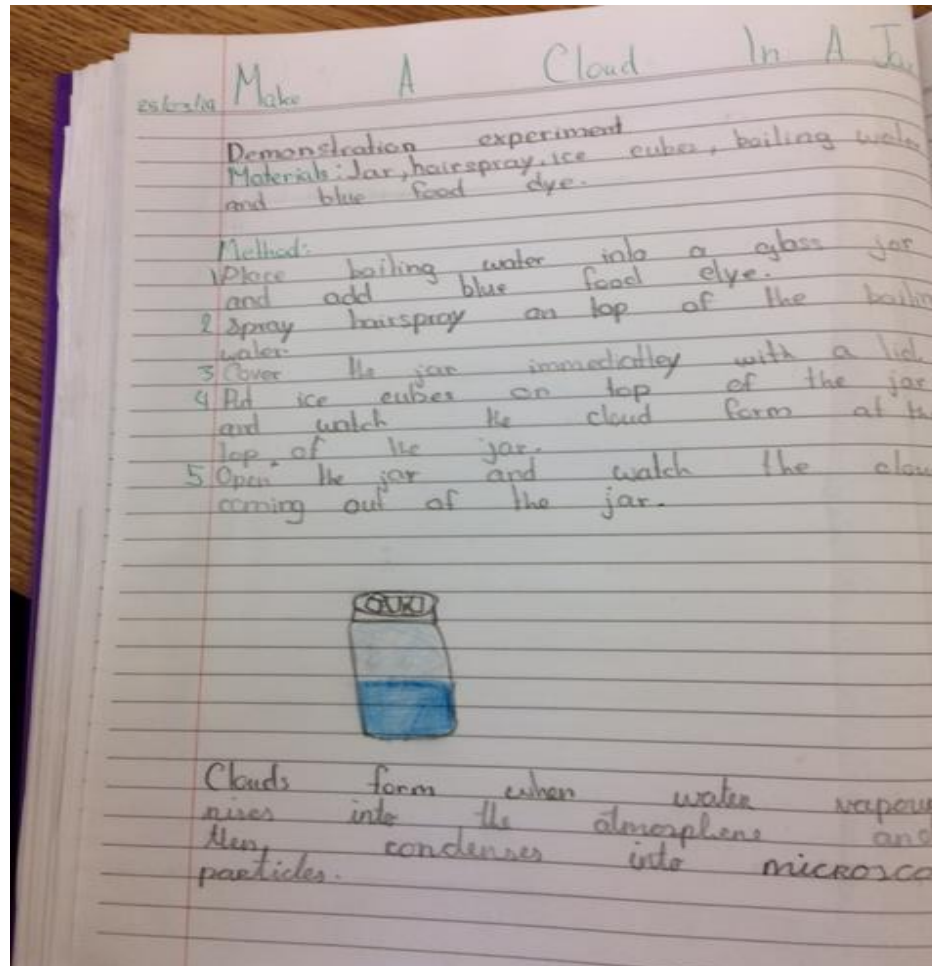 Make A Cloud In A Ja
Demonstration experiment
Materials: Jar, hairspray, ice cubes, boiling water
and blue food dye.
Method:
1 Place boiling water into a glass jar
and add blue food dye.
2 Spray hairspray on top of the boilin
water.
3 Cover the jar immediatley with a lid.
4 Put ice cubes on top of the jar
and watch the cloud form at th
top of the jar.
5 Open the jar and watch the clou
coming out of the jar.
Clouds form when water vapour
rises into the atmosphere and
then condenses into microsco
particles.